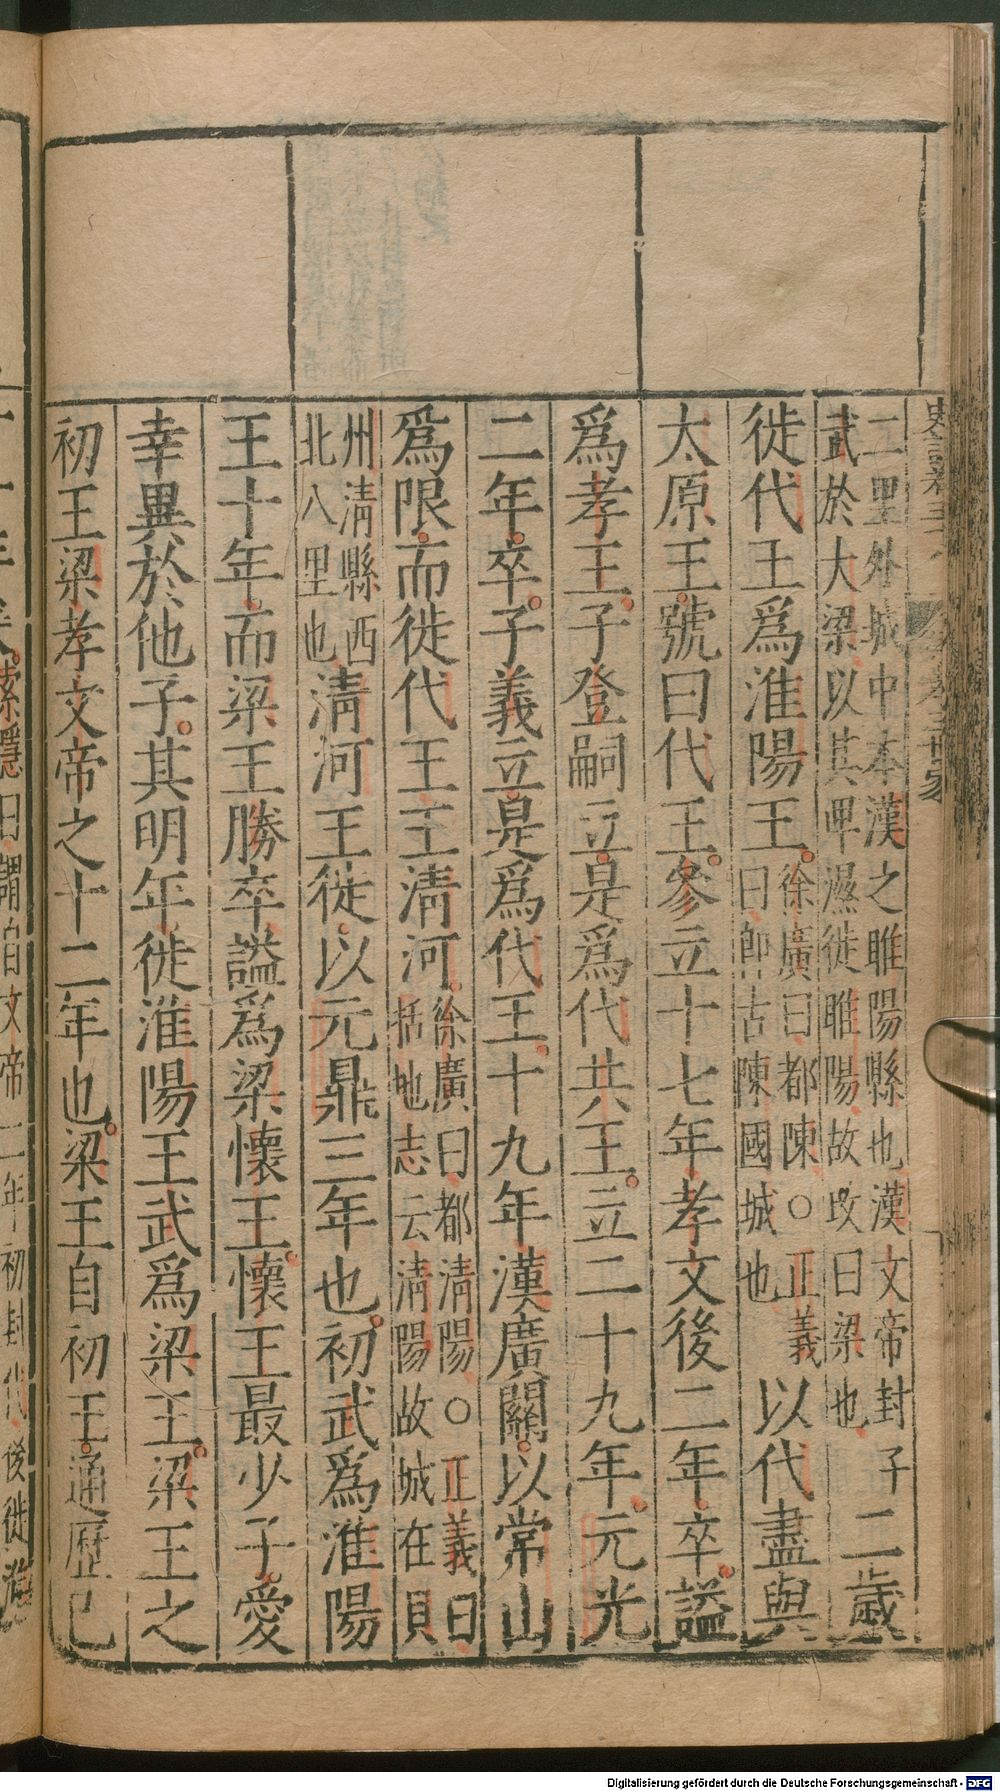 二里外城中本漢之睢陽縣也漢文帝封子
武於大梁以其卑濕徙睢陽故改曰梁也二歲
徙代王爲淮陽王徐廣曰都陳○正義
曰卽古陳國城也以代盡與
太原王號曰代王參立十七年孝文後二年卒謚
爲孝王子登嗣立是爲代共王立二十九年元光
二年卒子義立是爲代王十九年漢廣關以常山
爲限而徙代王王淸河徐廣曰都淸陽○正義曰
括地志云淸陽故城在貝
州淸縣西
北八里也淸河王徙以元鼎三年也初武爲淮陽
王十年而梁王勝卒謚爲梁懷王懷王最少子愛
幸異於他子其明年徙淮陽王武爲梁王梁王之
初王梁孝文帝之十二年也梁王自初王通歷已
Digitalisierung gefördert durch die Deutsche Forschungsgemeinschaft - DFG